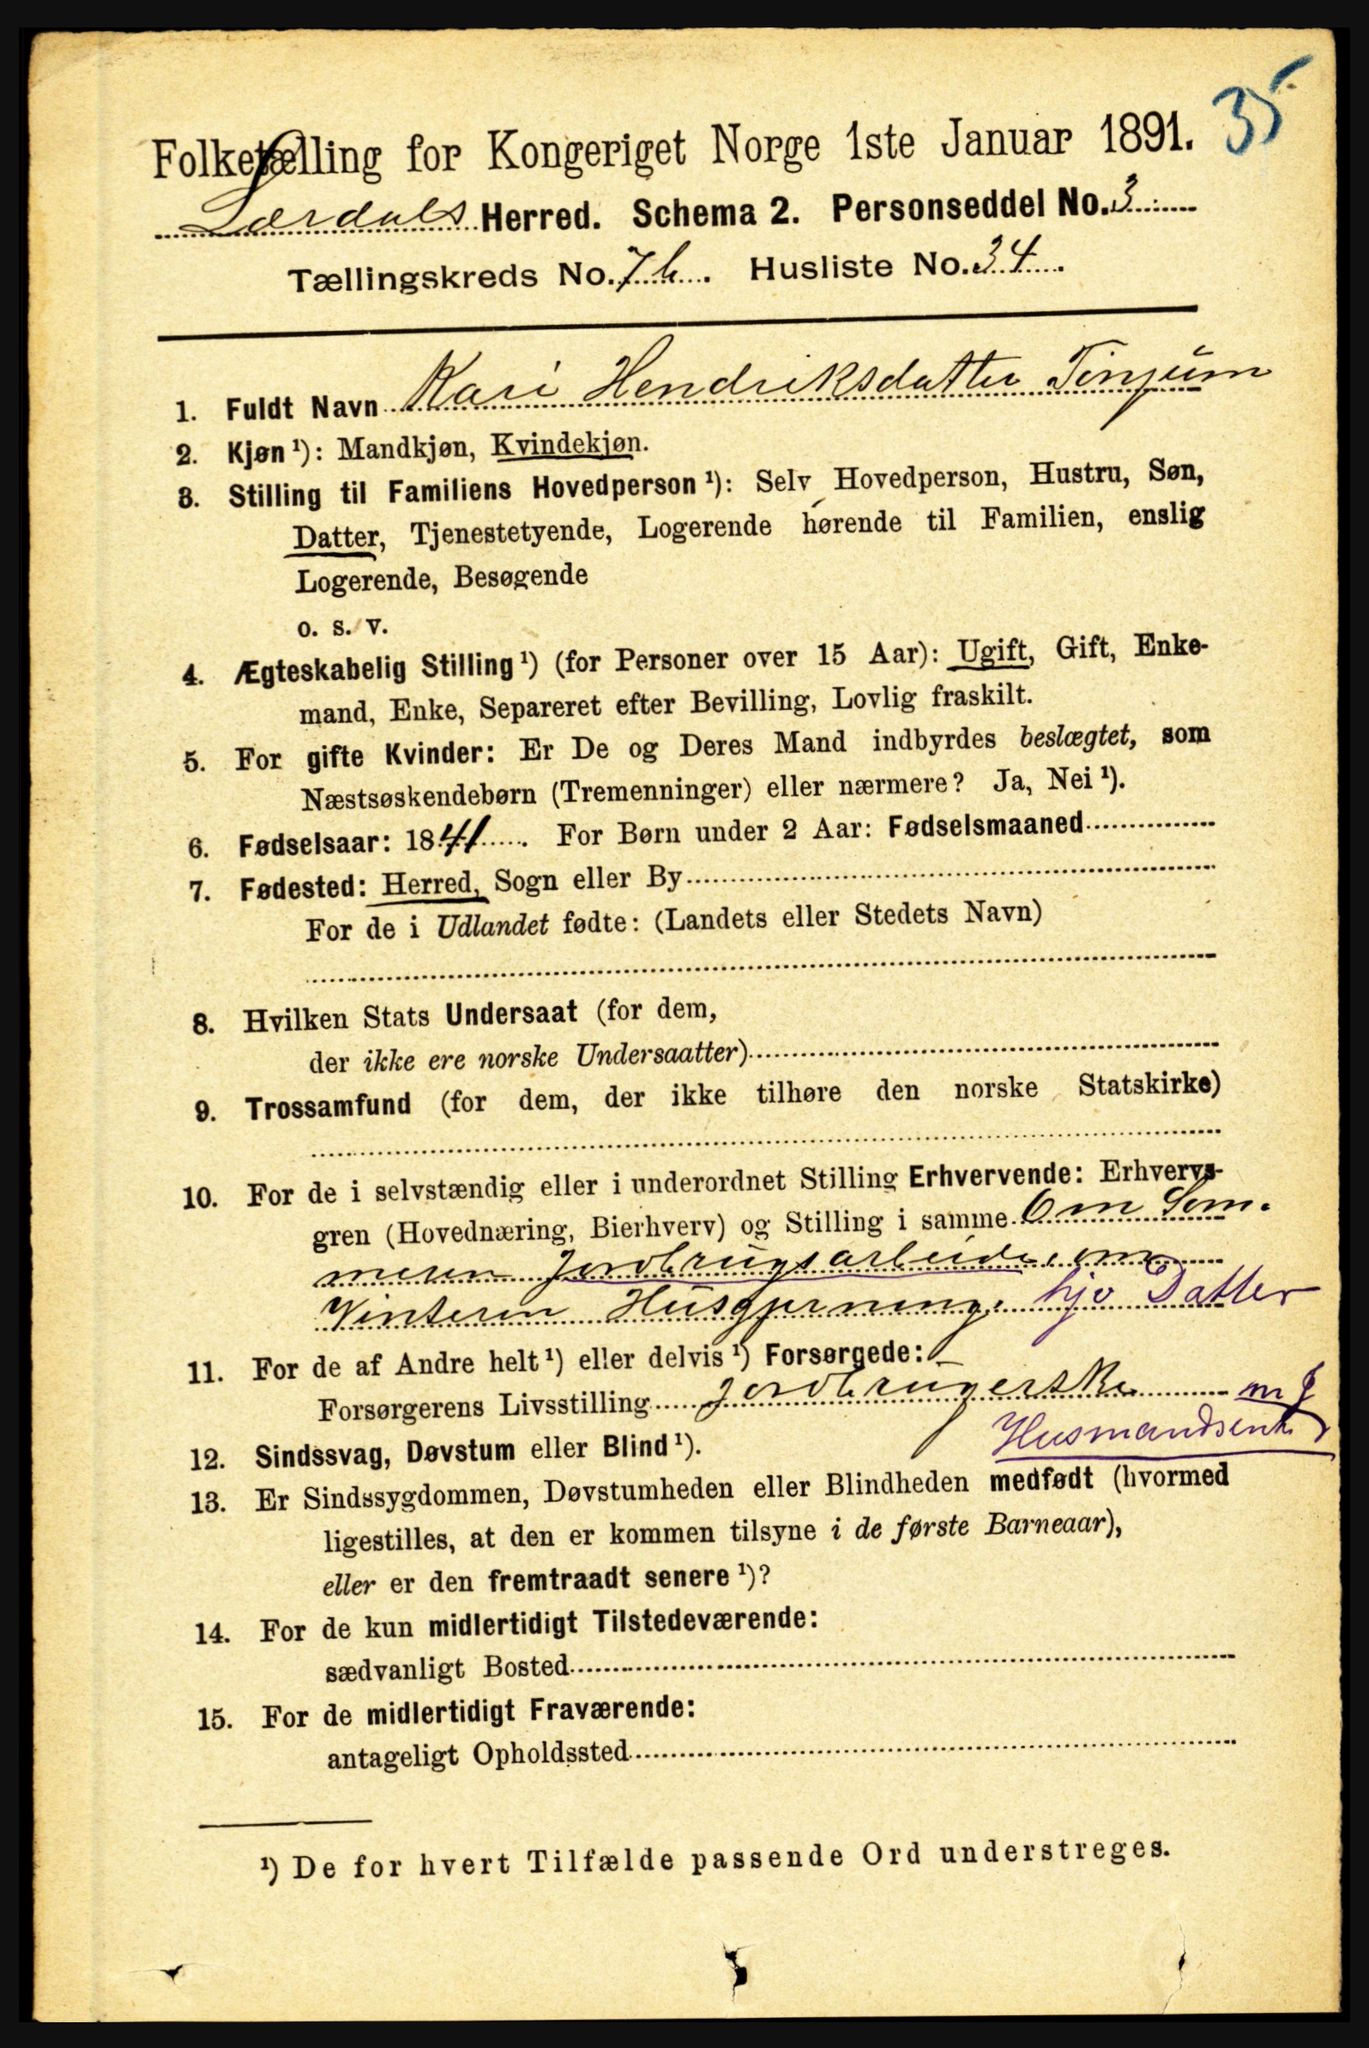 35
Folketælling for Kongeriget Norge 1ste Januar 1891.
Lærdals Herred. Schema 2. Personseddel No. 3
Tællingskreds No. 7b. Husliste No. 34.
1. Fuldt Navn Kari Hendriksdatter Tinjum
2. Kjøn ¹): Mandkjøn, Kvindekjøn.
3. Stilling til Familiens Hovedperson ¹): Selv Hovedperson, Hustru, Søn,
Datter, Tjenestetyende, Logerende hørende til Familien, enslig
Logerende, Besøgende
o. s. v.
4. Ægteskabelig Stilling ¹) (for Personer over 15 Aar): Ugift, Gift, Enke-
mand, Enke, Separeret efter Bevilling, Lovlig fraskilt.
5. For gifte Kvinder: Er De og Deres Mand indbyrdes beslægtet, som
Næstsøskendebørn (Tremenninger) eller nærmere? Ja, Nei ¹).
6. Fødselsaar: 1841. For Børn under 2 Aar: Fødselsmaaned
7. Fødested: Herred, Sogn eller By
For de i Udlandet fødte: (Landets eller Stedets Navn)
8. Hvilken Stats Undersaat (for dem,
der ikke ere norske Undersaatter)
9. Trossamfund (for dem, der ikke tilhøre den norske Statskirke)
10. For de i selvstændig eller i underordnet Stilling Erhvervende: Erhvervs-
gren (Hovednæring, Bierhverv) og Stilling i samme Om Som-
meren Jordbrugsarbeide, om
Vinteren Husgjerning. hjv Datter
11. For de af Andre helt ¹) eller delvis ¹) Forsørgede:
Forsørgerens Livsstilling Jordbrugerske m J
Husmandsenke
12. Sindssvag, Døvstum eller Blind ¹).
13. Er Sindssygdommen, Døvstumheden eller Blindheden medfødt (hvormed
ligestilles, at den er kommen tilsyne i de første Barneaar),
eller er den fremtraadt senere ¹)?
14. For de kun midlertidigt Tilstedeværende:
sædvanligt Bosted
15. For de midlertidigt Fraværende:
antageligt Opholdssted
¹) De for hvert Tilfælde passende Ord understreges.